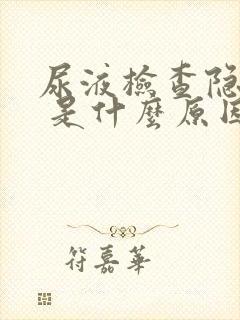 尿液檢查隐
是什麼原因
符嘉華